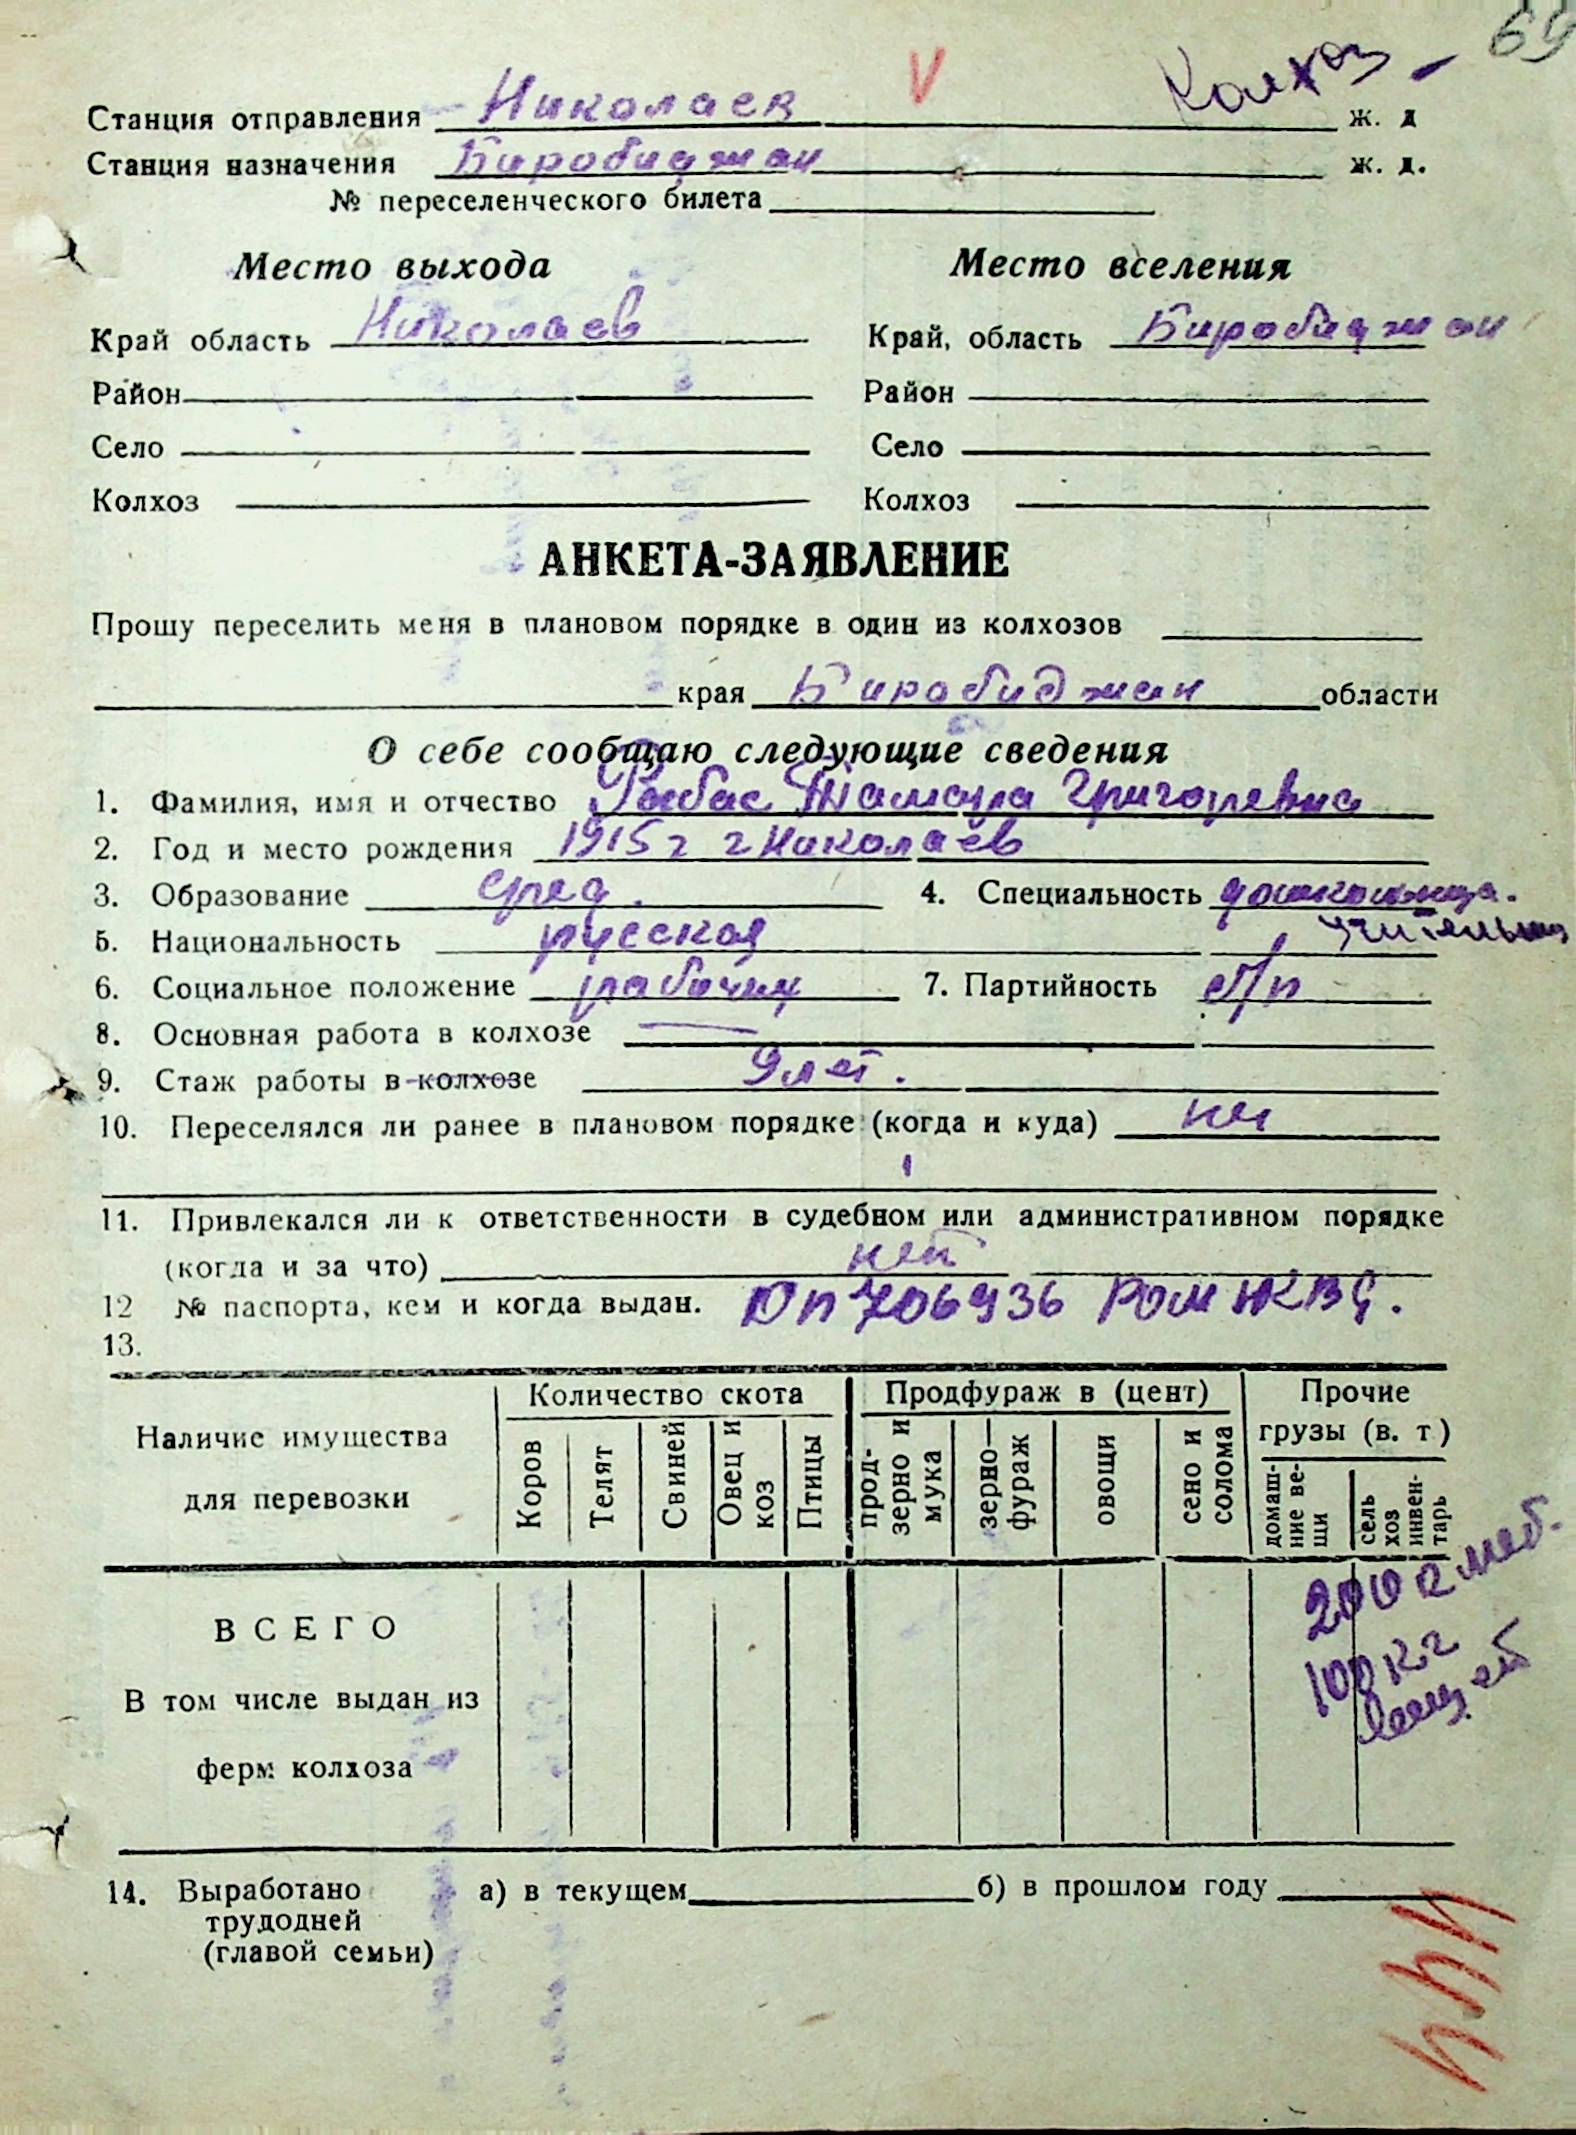 69
Колхоз –
V
Станция отправления Николаев ж. д
Станция назначения Биробиджан ж. д.
№ переселенческого билета
Место выхода
Место вселения
Край область Николаев
Край, область Биробиджан
Район
Район
Село
Село
Колхоз
Колхоз
АНКЕТА-ЗАЯВЛЕНИЕ
Прошу переселить меня в плановом порядке в один из колхозов
края Биробиджан области
О себе сообщаю следующие сведения
1. Фамилия, имя и отчество Рабас Тамара Григорьевна
2. Год и место рождения 1915 г г Николаев
3. Образование сред. 4. Специальность дошкольница.
учительница
5. Национальность русская
6. Социальное положение рабочих 7. Партийность б/п
8. Основная работа в колхозе —
9. Стаж работы в колхозе 9 лет.
10. Переселялся ли ранее в плановом порядке (когда и куда) нет
11. Привлекался ли к ответственности в судебном или административном порядке
(когда и за что) нет
12 № паспорта, кем и когда выдан. 706936 РОМ НКВД.
13.
Наличие имущества
для перевозки
Количество скота
Коров
Телят
Свиней
Овец и
коз
Птицы
Продфураж в (цент)
прод-
зерно и
мука
зерно—
фураж
овощи
сено и
солома
Прочие
грузы (в. т)
домаш-
ние ве-
щи
сель
хоз
инвен-
тарь
ВСЕГО
200 к меб.
100 кг
вещей
В том числе выдан из
ферм колхоза
14. Выработано а) в текущем б) в прошлом году
трудодней
(главой семьи)